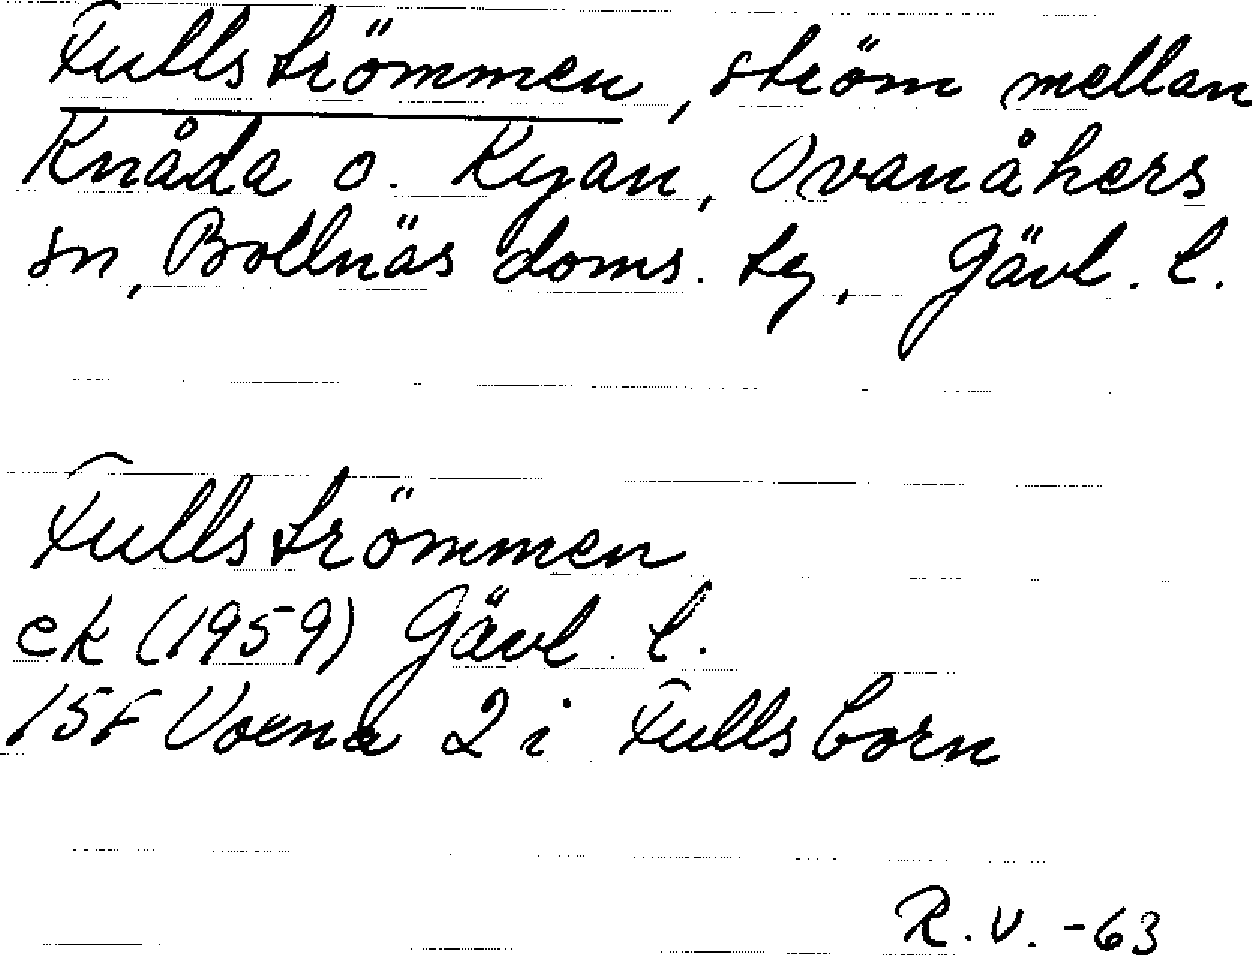 Fullströmmen, ström mellan
Knåda o. Ryan, Ovanåkers
sn, Bollnäs doms. tg, Gävl. l.
Fullströmmen
ek (1959) Gävl. l.
15F Voxna 2 i Fullsborn
R.V. -63